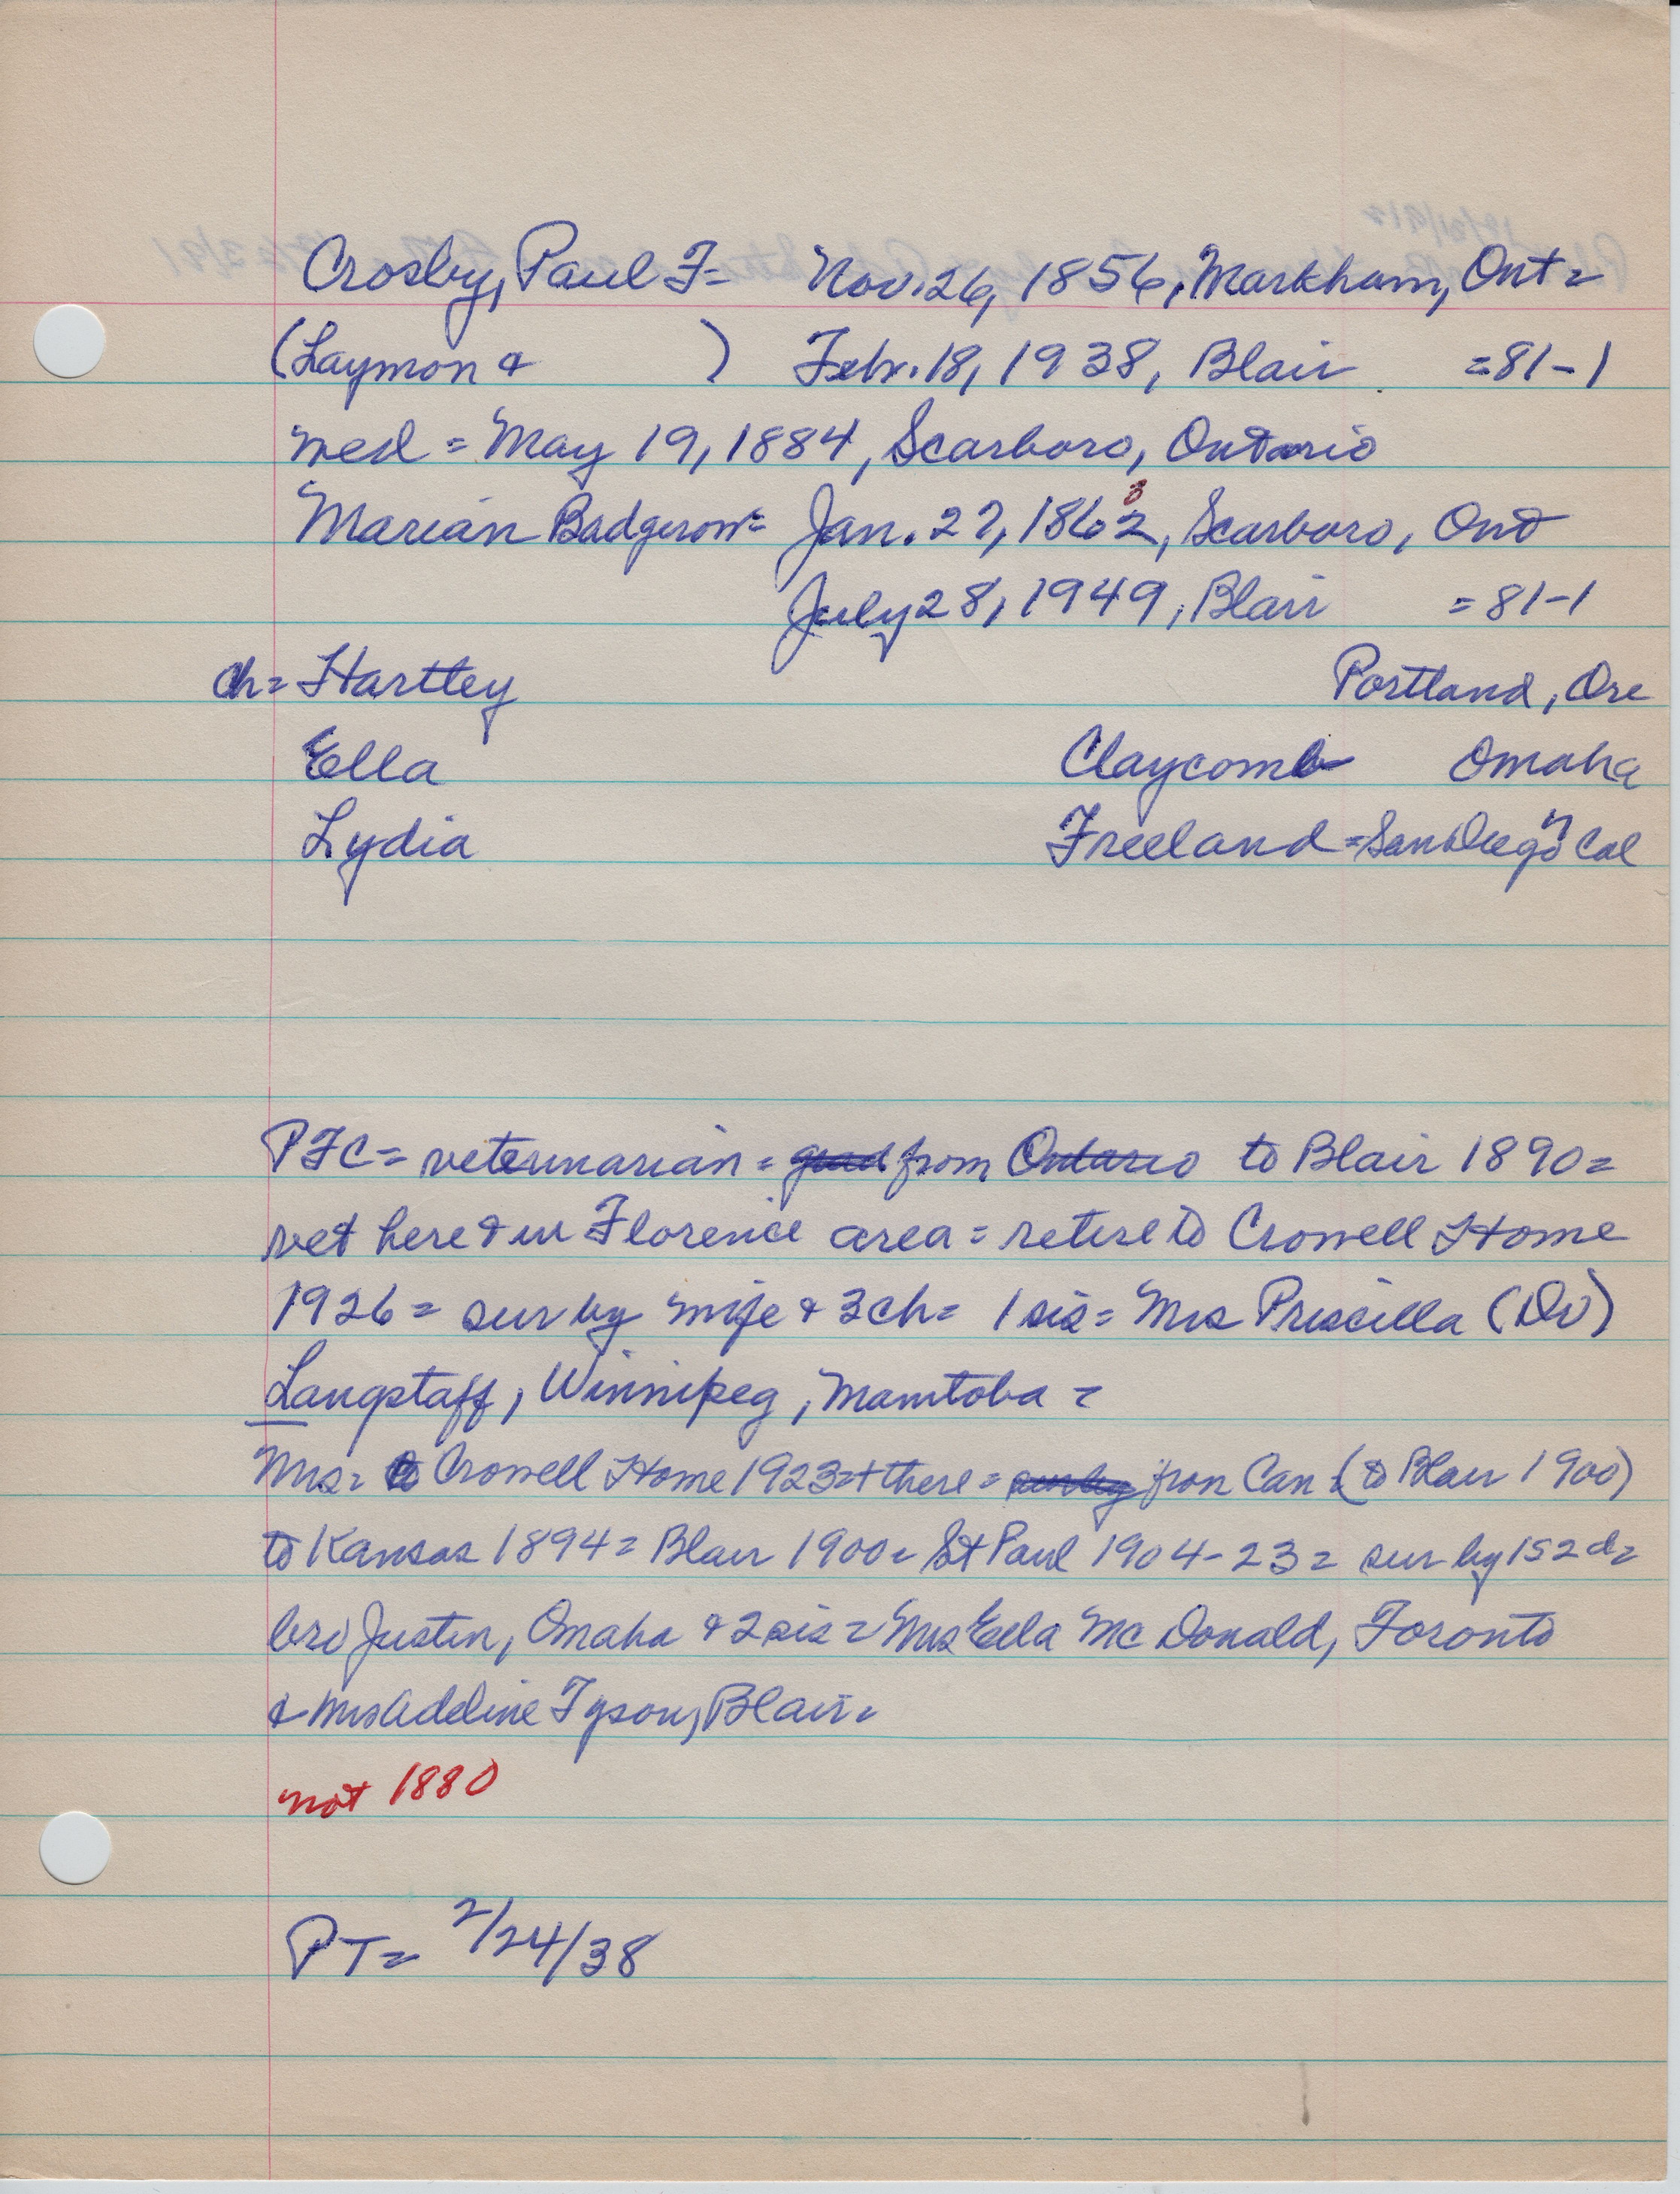 Crosby, Paul F= Nov. 26, 1856, Markham, Ont=
(Laymon & ) Febr. 18, 1938, Blair =81-1
wed = May 19, 1884, Scarboro, Ontario
3
Marian Badgerow= Jan. 27, 1862, Scarboro, Ont
July 28, 1949, Blair =81-1
ch= Hartley Portland, Ore
Ella Claycomb Omaha
Lydia Freeland = San Diego Cal
PFC= veterinarian = grad from Ontario to Blair 1890=
vet here & in Florence area = retire to Crowell Home
1926= sur by wife & 3 ch= 1 sis= Mrs Priscilla (Dv)
Langstaff, Winnipeg, Manitoba=
Mrs= to Crowell Home 1923=+ there= sur by from Can (to Blair 1900)
to Kansas 1894= Blair 1900= St Paul 1904-23= sur by 1s 2d=
bro Justin, Omaha & 2 sis= Mrs Ella McDonald, Toronto
& Mrs Addine Tyson, Blair=
not 1880
PT= 2/24/38